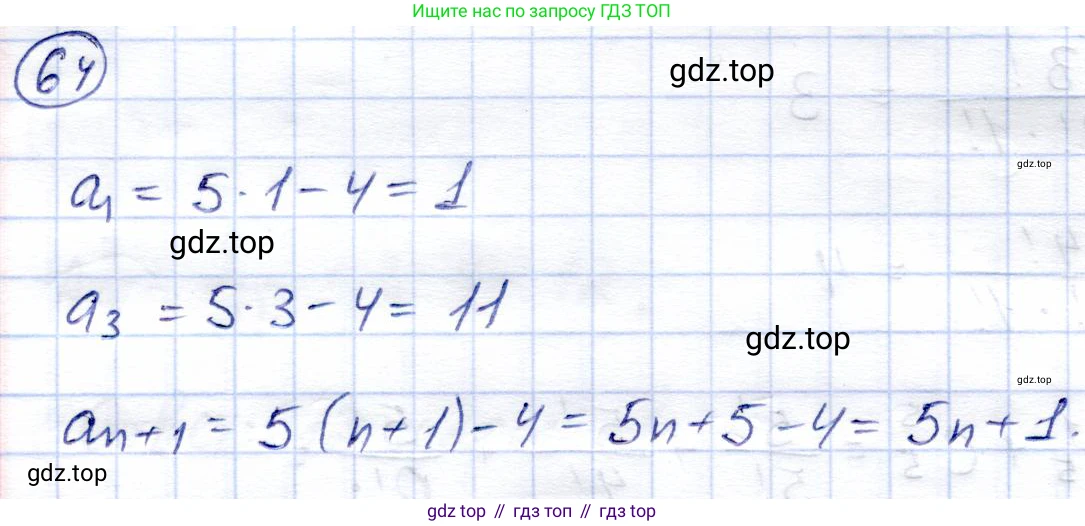 Ищите нас по запросу ГДЗ ТОП
64
gdz.top
gdz.top
a₁ = 5 · 1 - 4 = 1
gdz.top
a₃ = 5 · 3 - 4 = 11
gdz.top
gdz.top
aₙ₊₁ = 5(n+1) - 4 = 5n + 5 - 4 = 5n + 1.
gdz.top
gdz.top // гдз топ // гдз.top